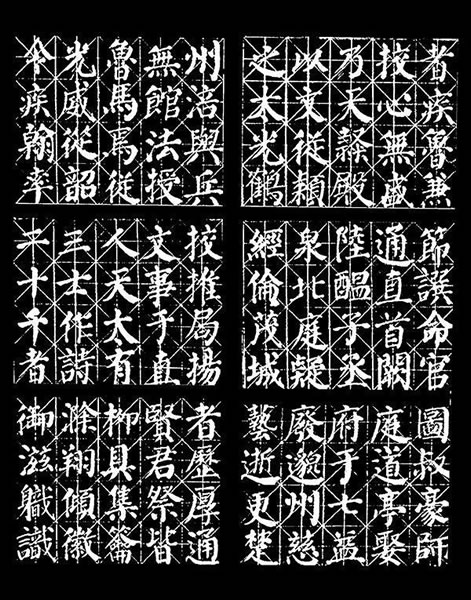 者疾魯兼
挍心無盛
乃天繇殿
以文從穎
之木光鶴
州涪與兵
無館法授
魯馬爲從
光威從韶
疾翰率
節譔命官
通直首闕
陸醞子丞
泉北庭疑
經倫茂城
挍推局揚
文事于直
人天太有
三士作詩
二十千者
圖叔豪師
庭道亭娶
府于七益
廢邈州慈
藝逝更楚
者歷厚通
賢君祭皆
柳具集龠
滁翔傾徽
御滋職識